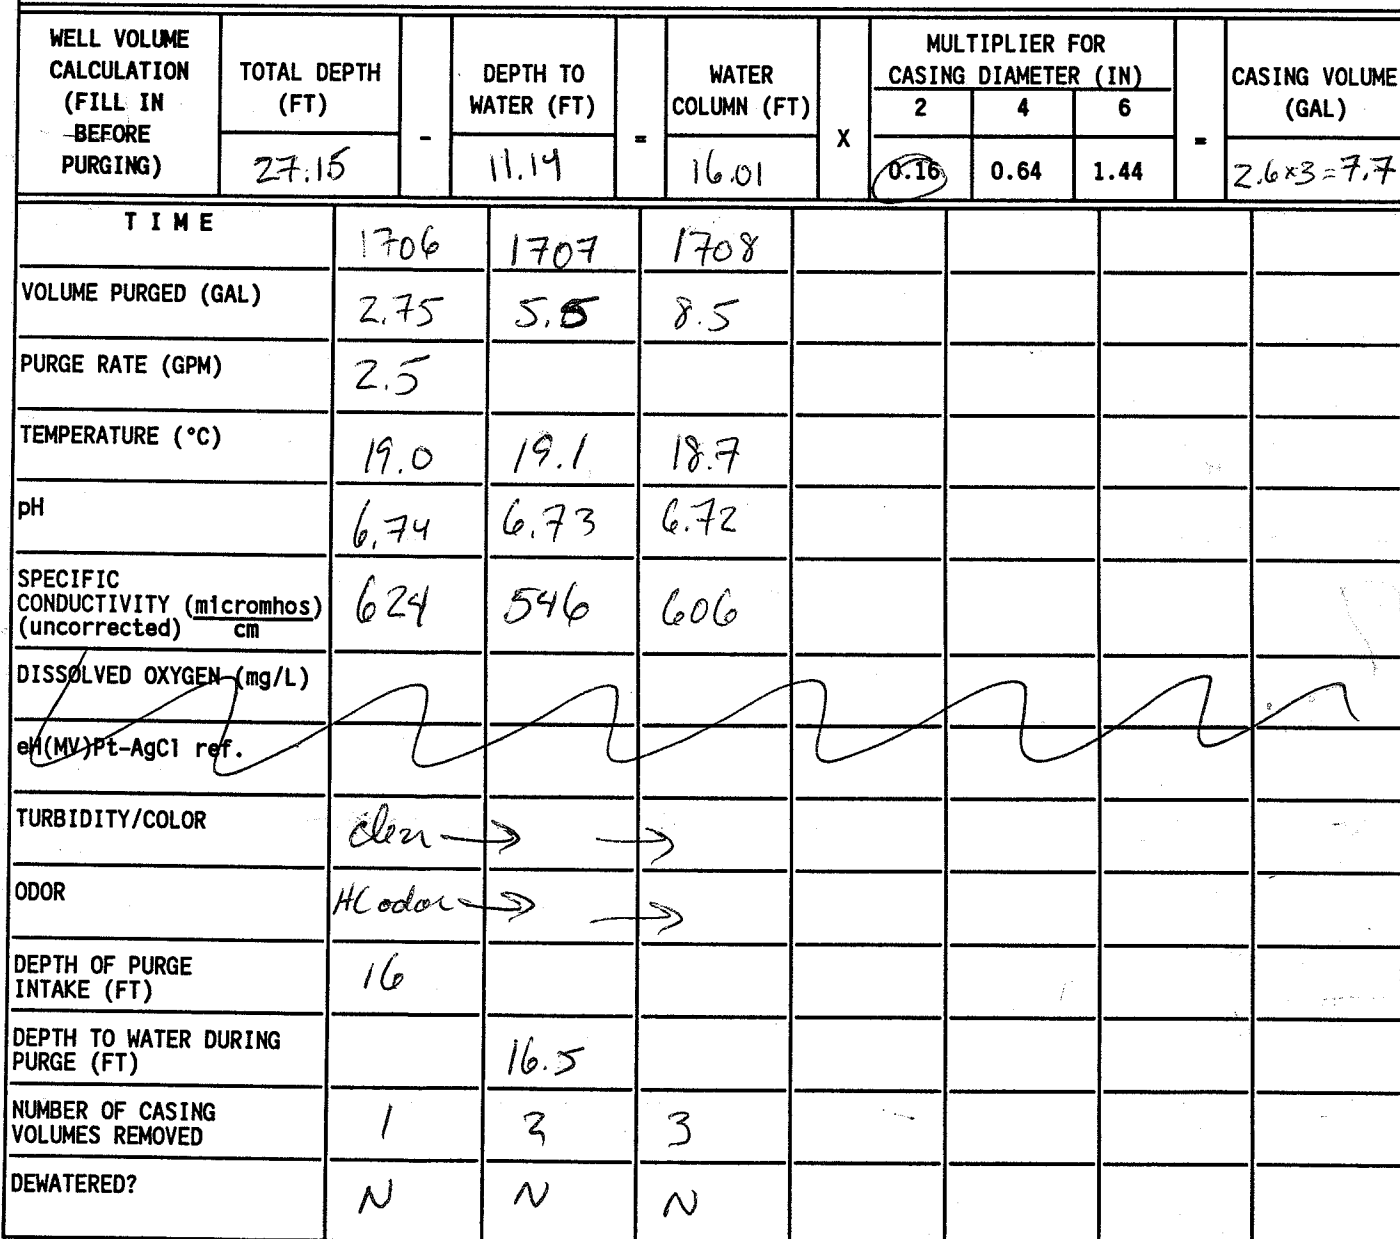 WELL VOLUME CALCULATION (FILL IN BEFORE PURGING)
TOTAL DEPTH (FT)
27.15
-
DEPTH TO WATER (FT)
11.14
=
WATER COLUMN (FT)
16.01
X
MULTIPLIER FOR CASING DIAMETER (IN)
2 4 6
0.16 0.64 1.44
=
CASING VOLUME (GAL)
2.6x3=7.7
TIME 1706 1707 1708
VOLUME PURGED (GAL) 2.75 5.5 8.5
PURGE RATE (GPM) 2.5
TEMPERATURE (°C) 19.0 19.1 18.7
pH 6.74 6.73 6.72
SPECIFIC
CONDUCTIVITY (micromhos) 624 546 606
(uncorrected) cm
DISSOLVED OXYGEN (mg/L)
eH(MV)Pt-AgCl ref.
TURBIDITY/COLOR clear → →
ODOR HC odor → →
DEPTH OF PURGE
INTAKE (FT) 16
DEPTH TO WATER DURING
PURGE (FT) 16.5
NUMBER OF CASING
VOLUMES REMOVED 1 3
DEWATERED? N N N